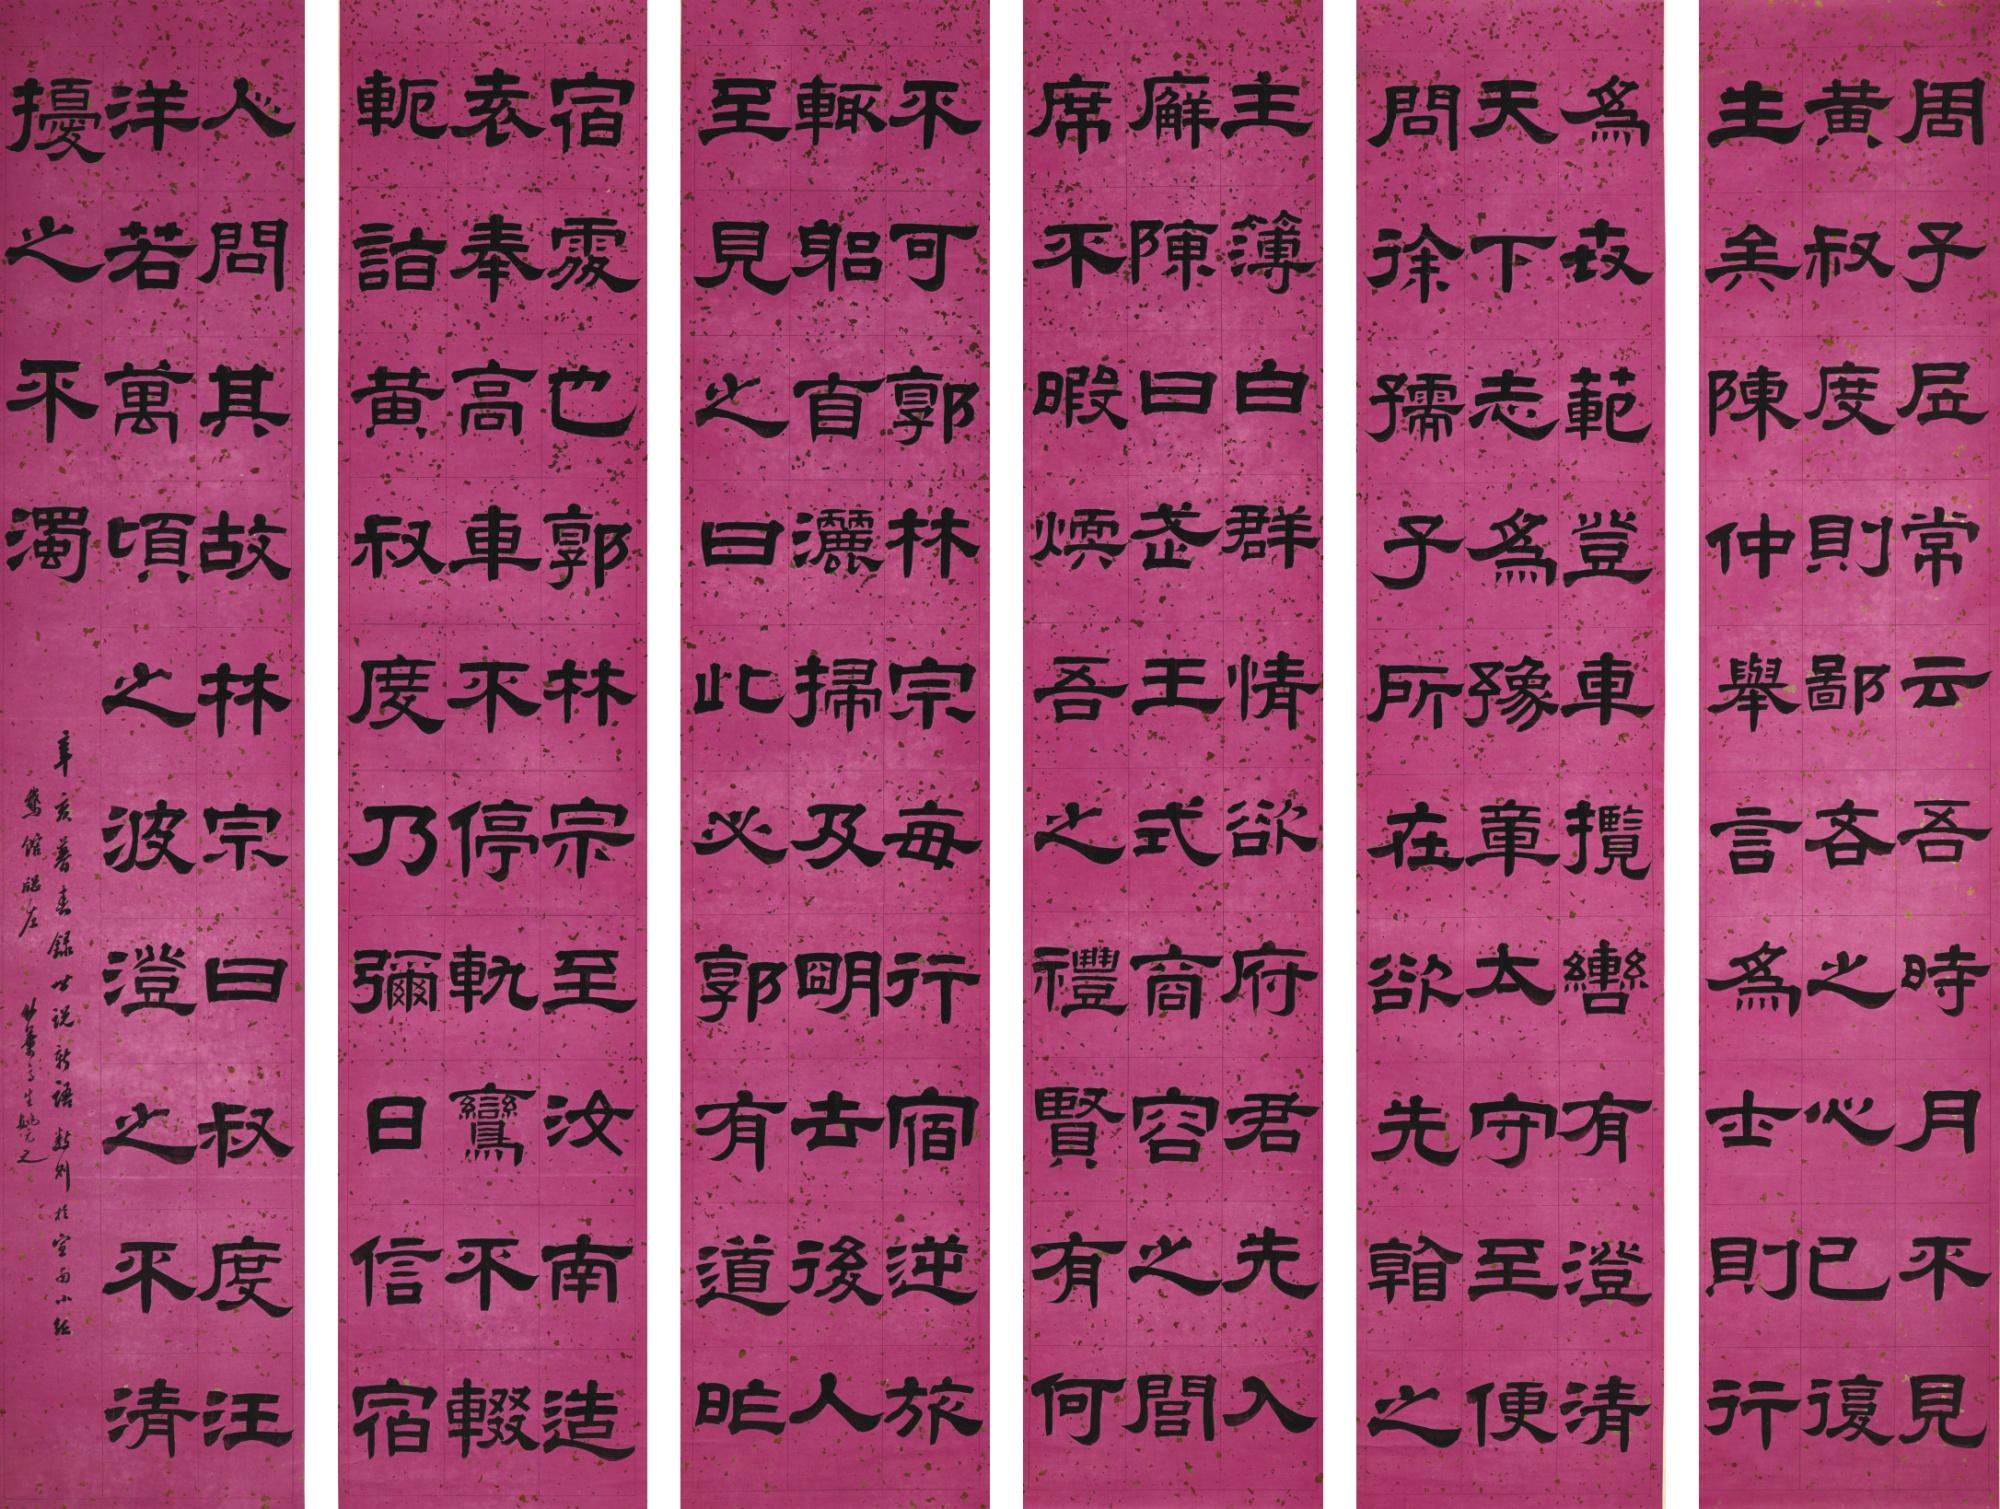 周子居常云吾時月不見
黃叔度則鄙吝之心已復
生矣陳仲舉言爲士則行
爲世範登車攬轡有澄清
天下志爲豫章太守至便
問徐孺子所在欲先翰之
主簿白群情欲府君先入
廨陳曰武王式商容之閭
席不暇煗吾之禮賢有何
不可郭林宗每行宿逆旅
輒躬自灑掃及明去後人
至見之曰此必郭有道昨
宿處也郭林宗至汝南造
袁奉高車不停軌鸞不輟
軛詣黃叔度乃彌日信宿
人問其故林宗曰叔度汪
洋若萬頃之波澄之不清
擾之不濁
辛亥暮春録世說新語數則於宣南小紅
鵞館牕左 竹葉亭生姚元之